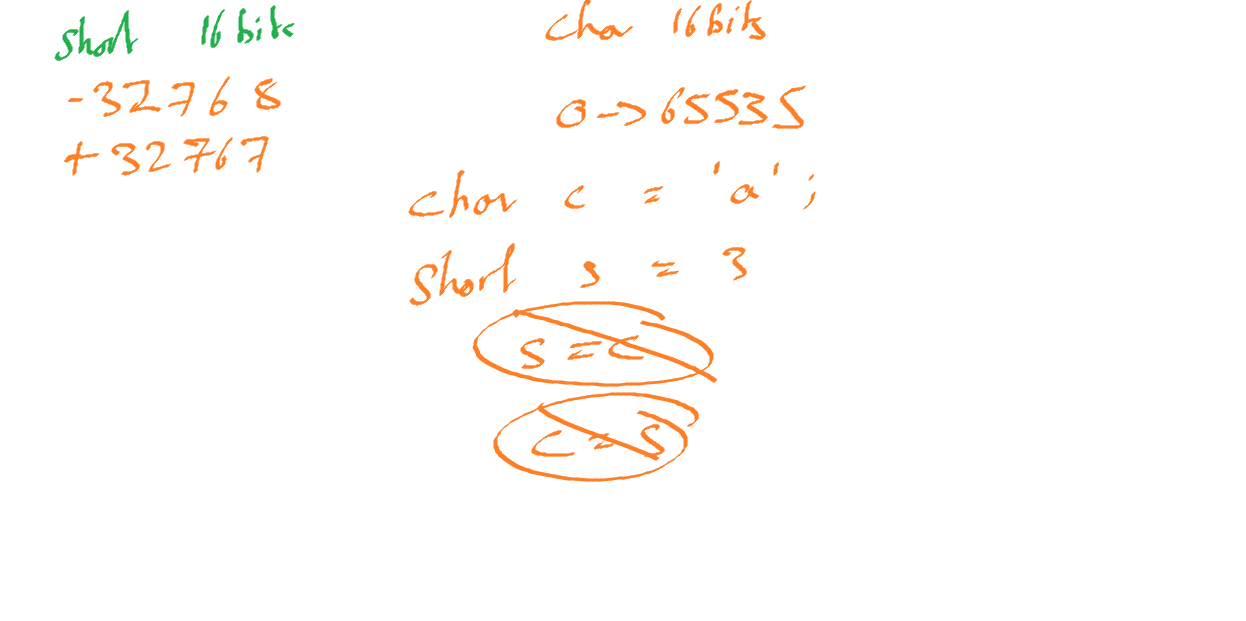 short 16 bits
-32768
+32767
char 16 bits
0->65535
char c = 'a';
short s = 3
s=c
c=s